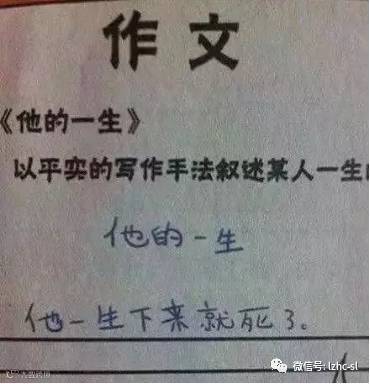 作文
《他的一生》
以平实的写作手法叙述某人一生
他的一生
他一生下来就死了。
微信号: lzhc-sl